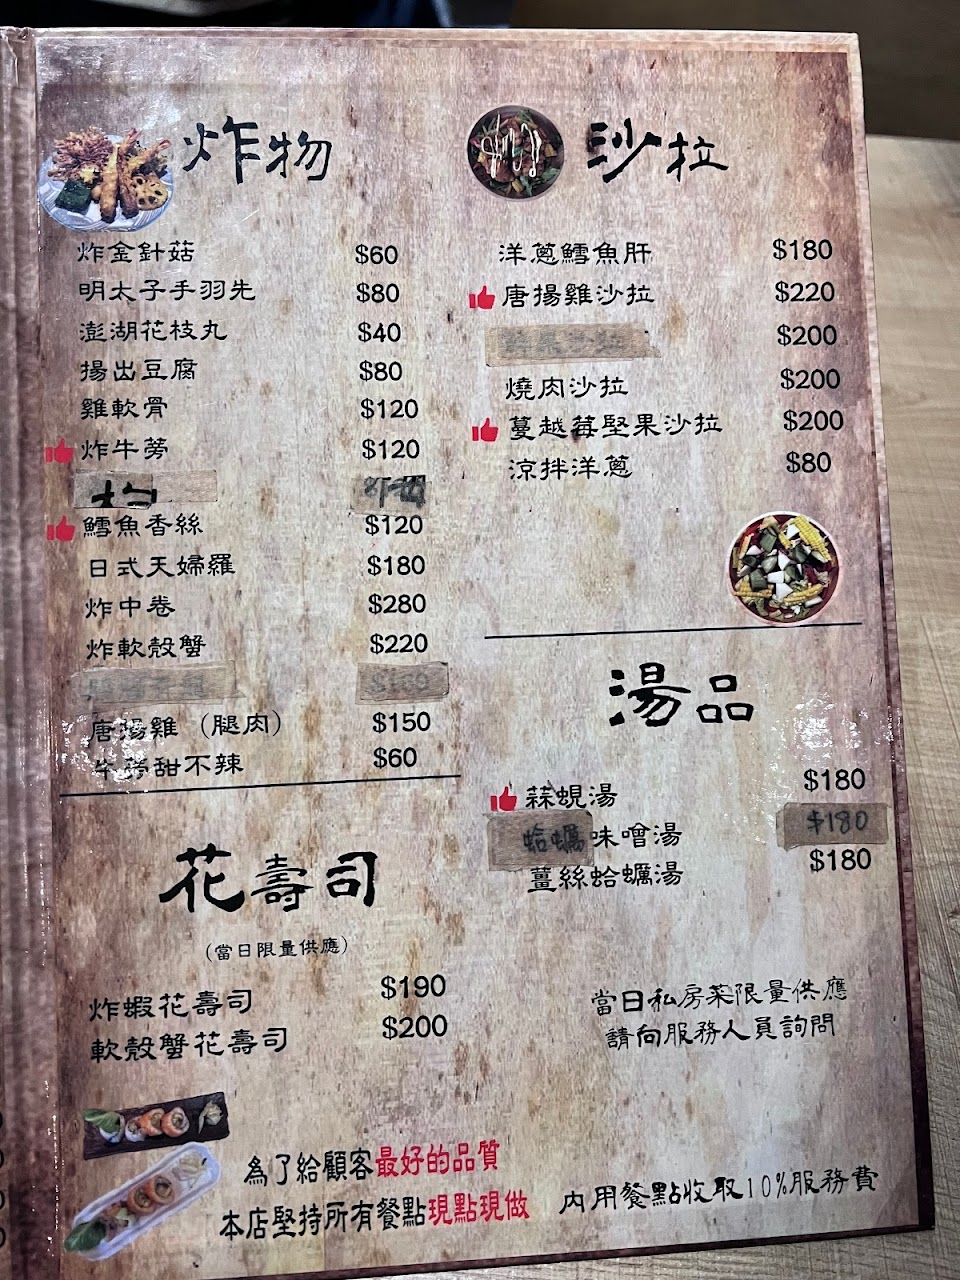 炸物
炸金針菇 $60
明太子手羽先 $80
澎湖花枝丸 $40
揚出豆腐 $80
雞軟骨 $120
炸牛蒡 $120
鱈魚香絲 $120
日式天婦羅 $180
炸中卷 $280
炸軟殼蟹 $220
唐揚雞（腿肉） $150
牛蒡甜不辣 $60
花壽司
(當日限量供應)
炸蝦花壽司 $190
軟殼蟹花壽司 $200
沙拉
洋蔥鱈魚肝 $180
唐揚雞沙拉 $220
$200
燒肉沙拉 $200
蔓越莓堅果沙拉 $200
涼拌洋蔥 $80
湯品
蒜蜆湯 $180
蛤蠣味噌湯 $180
薑絲蛤蠣湯 $180
當日私房菜限量供應
請向服務人員詢問
為了給顧客最好的品質
本店堅持所有餐點現點現做
內用餐點收取10%服務費